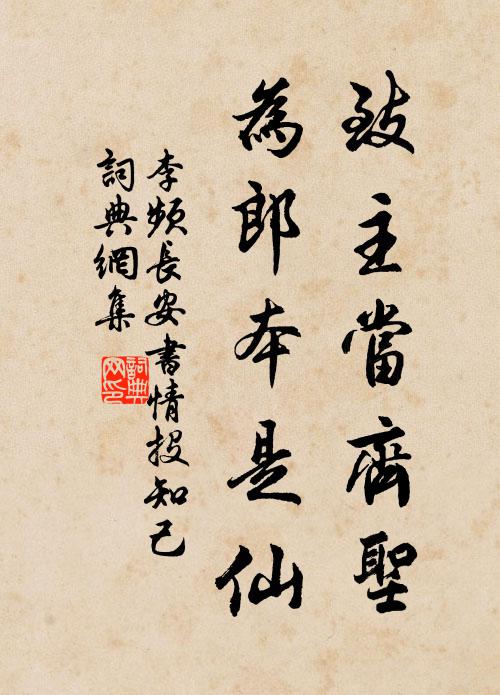 致主當齊聖
為郎本是仙
李頻長安書情投知己
詞典網集
詞典网印